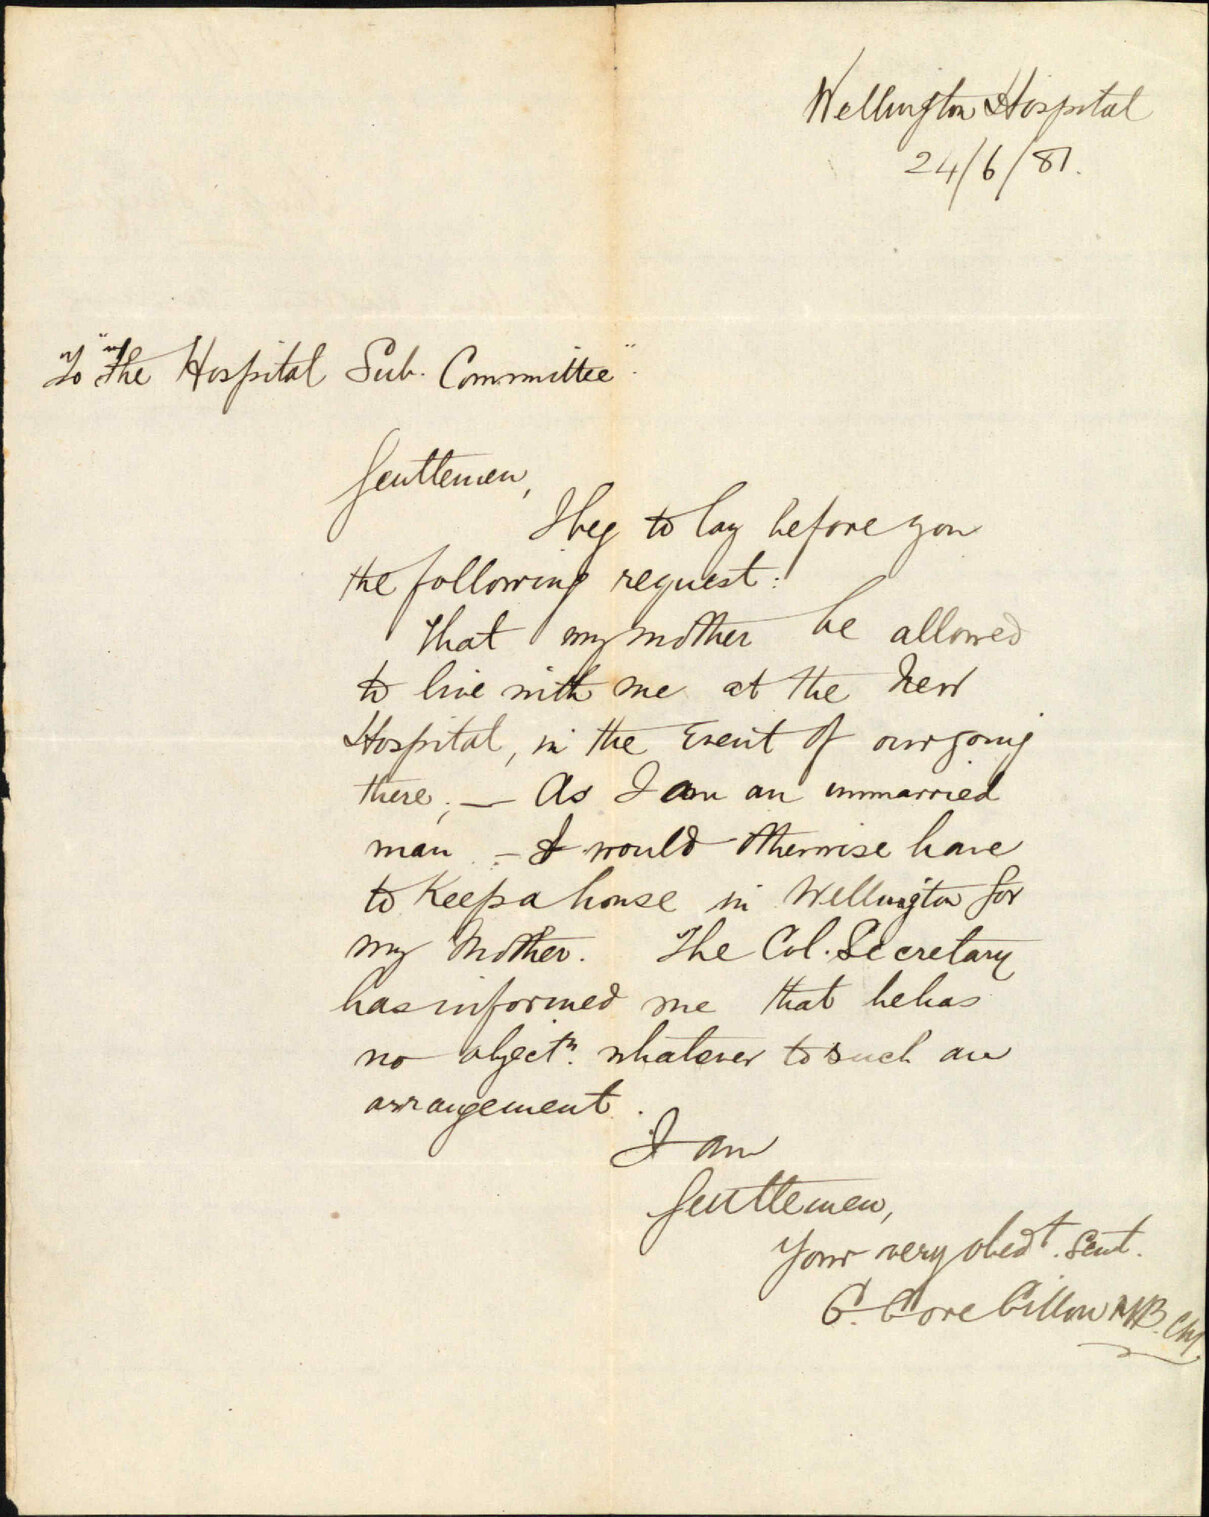 Wellington Hospital
24/6/81.
To "The Hospital Sub. Committee".
Gentlemen,
I beg to lay before you
the following request:
That my mother be allowed
to live with me at the New
Hospital, in the Event of our going
there; — As I am an unmarried
man – I would otherwise have
to Keep a house in Wellington for
my Mother. The Col. Secretary
has informed me that he has
no objectn. whatever to such an
arrangement.
I am
Gentlemen,
Your very obedt. Servt.
G. Gore Gillon M.B. C.M.